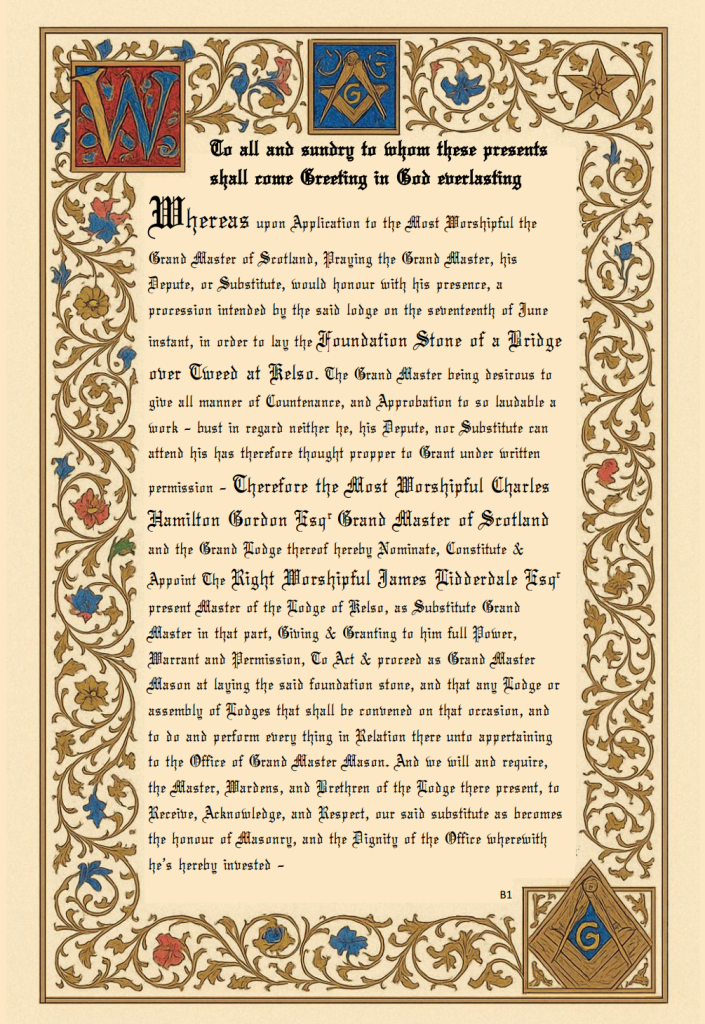 W
G
To all and sundry to whom these presents
shall come Greeting in God everlasting
Whereas upon Application to the Most Worshipful the
Grand Master of Scotland, Praying the Grand Master, his
Depute, or Substitute, would honour with his presence, a
procession intended by the said lodge on the seventeenth of June
instant, in order to lay the Foundation Stone of a Bridge
over Tweed at Kelso. The Grand Master being desirous to
give all manner of Countenance, and Approbation to so laudable a
work – bust in regard neither he, his Depute, nor Substitute can
attend his has therefore thought propper to Grant under written
permission – Therefore the Most Worshipful Charles
Hamilton Gordon Esqʳ Grand Master of Scotland
and the Grand Lodge thereof hereby Nominate, Constitute &
Appoint The Right Worshipful James Lidderdale Esqʳ
present Master of the Lodge of Kelso, as Substitute Grand
Master in that part, Giving & Granting to him full Power,
Warrant and Permission, To Act & proceed as Grand Master
Mason at laying the said foundation stone, and that any Lodge or
assembly of Lodges that shall be convened on that occasion, and
to do and perform every thing in Relation there unto appertaining
to the Office of Grand Master Mason. And we will and require,
the Master, Wardens, and Brethren of the Lodge there present, to
Receive, Acknowledge, and Respect, our said substitute as becomes
the honour of Masonry, and the Dignity of the Office wherewith
he's hereby invested –
B1
G